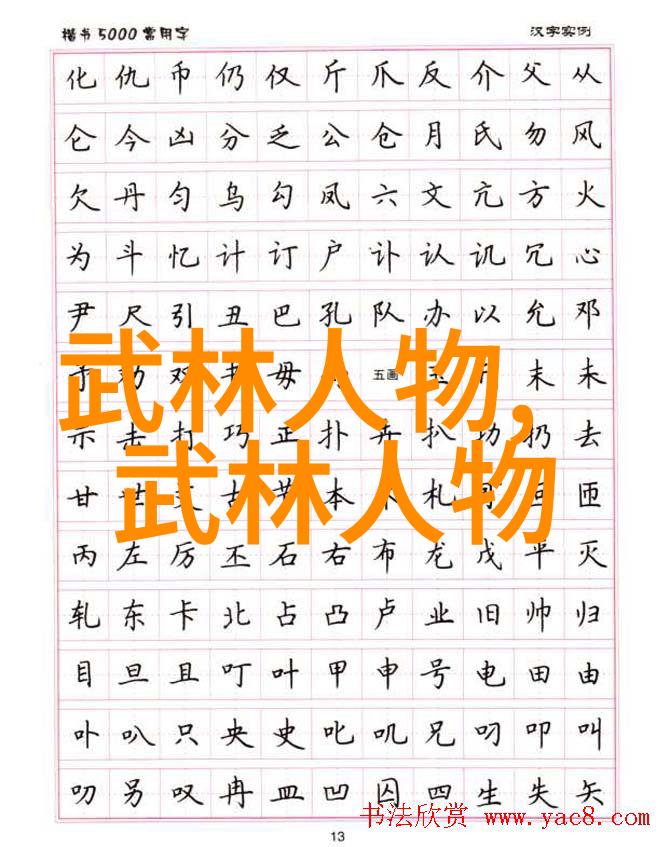 楷书5000常用字 汉字实例
化 仇 币 仍 仅 斤 爪 反 介 父 从
仑 今 凶 分 乏 公 仓 月 氏 勿 风
欠 丹 匀 乌 勾 凤 六 文 亢 方 火
为 斗 忆 计 订 户 讣 认 讥 冗 心
尹 尺 引 丑 巴 孔 队 办 以 允 邓
劝 双 书 毋 五画 玉 末 未
武林人物,
示 击 打 巧 正 扑 卉 扒 功 扔 去
甘 世 古 节 本 札 匝
武林人物
丙 左 厉 丕 石 右 布 龙 戊 平 灭
轧 东 卡 北 占 凸 卢 业 旧 帅 归
目 旦 且 叮 叶 甲 申 号 电 田 由
卟 叭 只 央 史 叱 叽 兄 叼 叩 叫
叻 另 叹 冉 皿 凹 囚 四 生 失 矢
书法欣赏 www.yac8.com
13